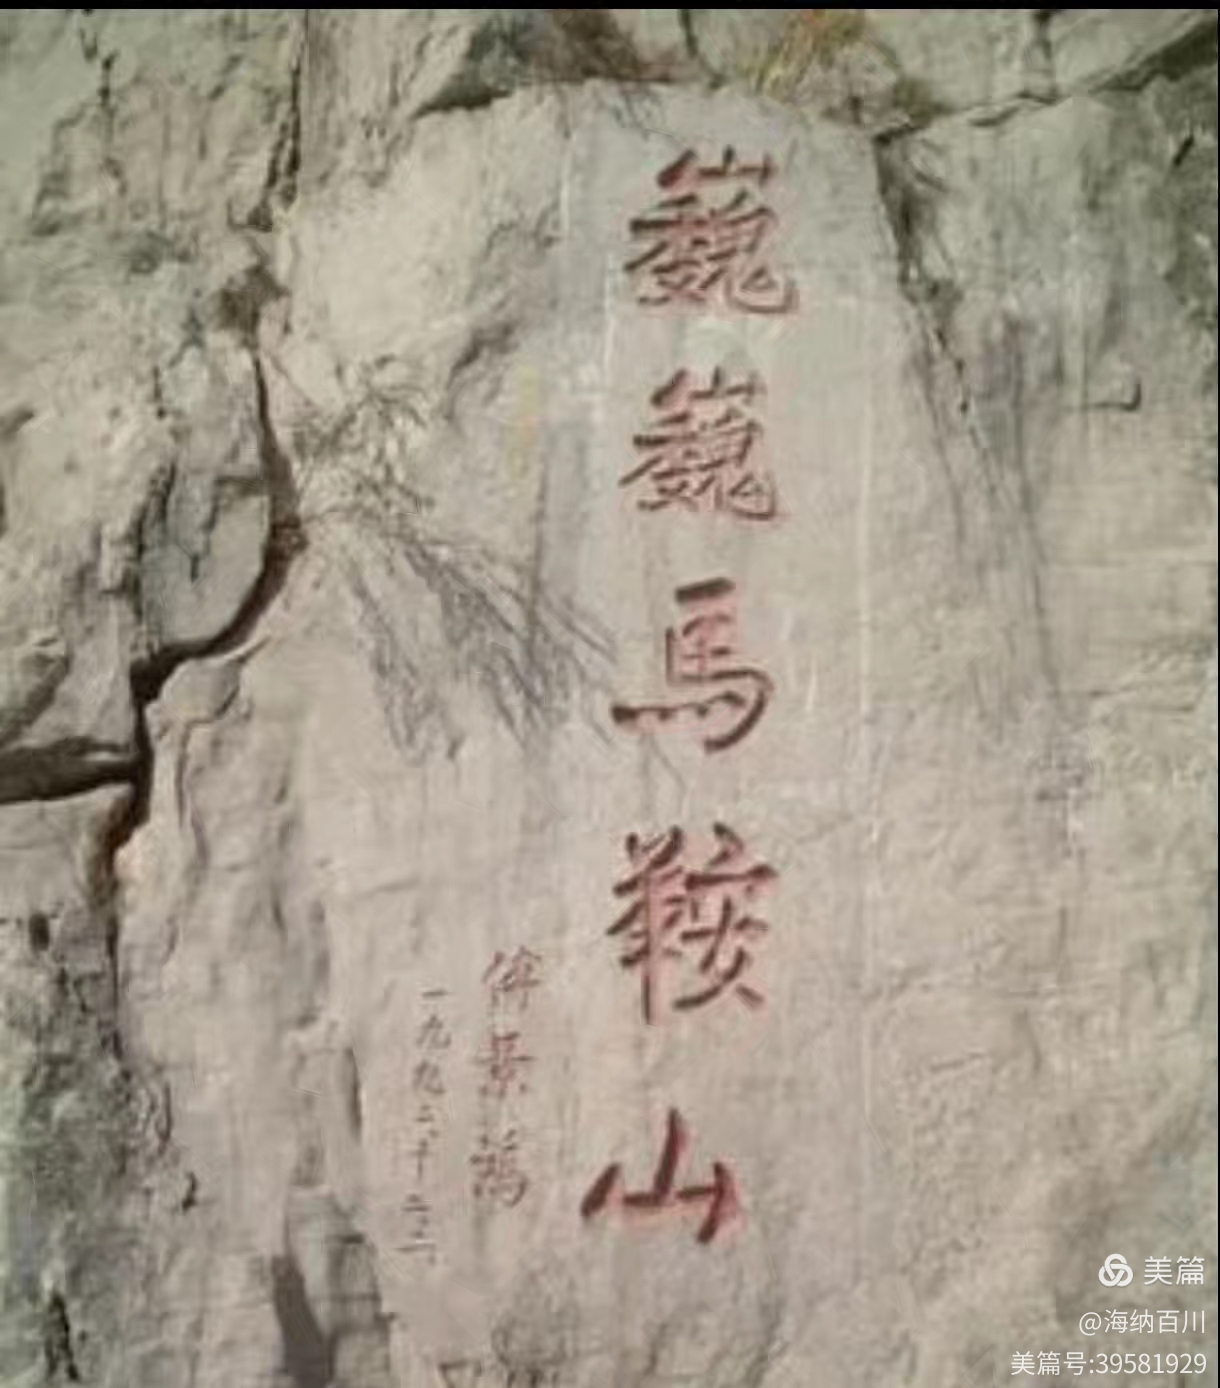 巍巍馬鞍山
景
一九九二.十二.二
美篇
@海纳百川
美篇号:39581929